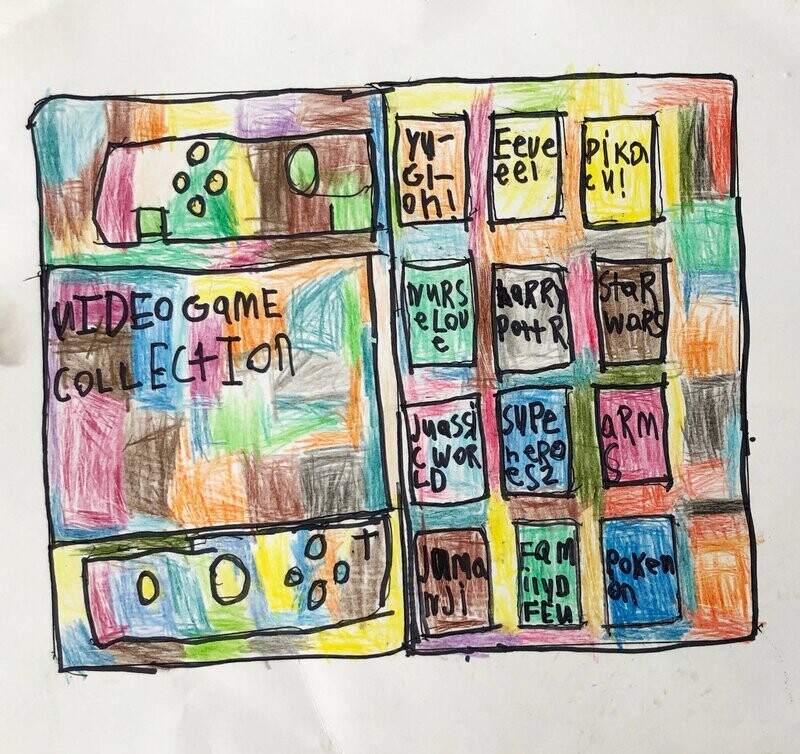 VIDEOGAME
COLLECTION
YU-
GI-
oh!
Eeve
eei
pika
cu!
NURS
eLOV
e
haRRY
PottR
StaR
waRS
Juassi
c WOR
LD
SUPe
heRO
es2
aRM
S
Juma
nJi
Fam
ilyD
FEU
Pokem
on